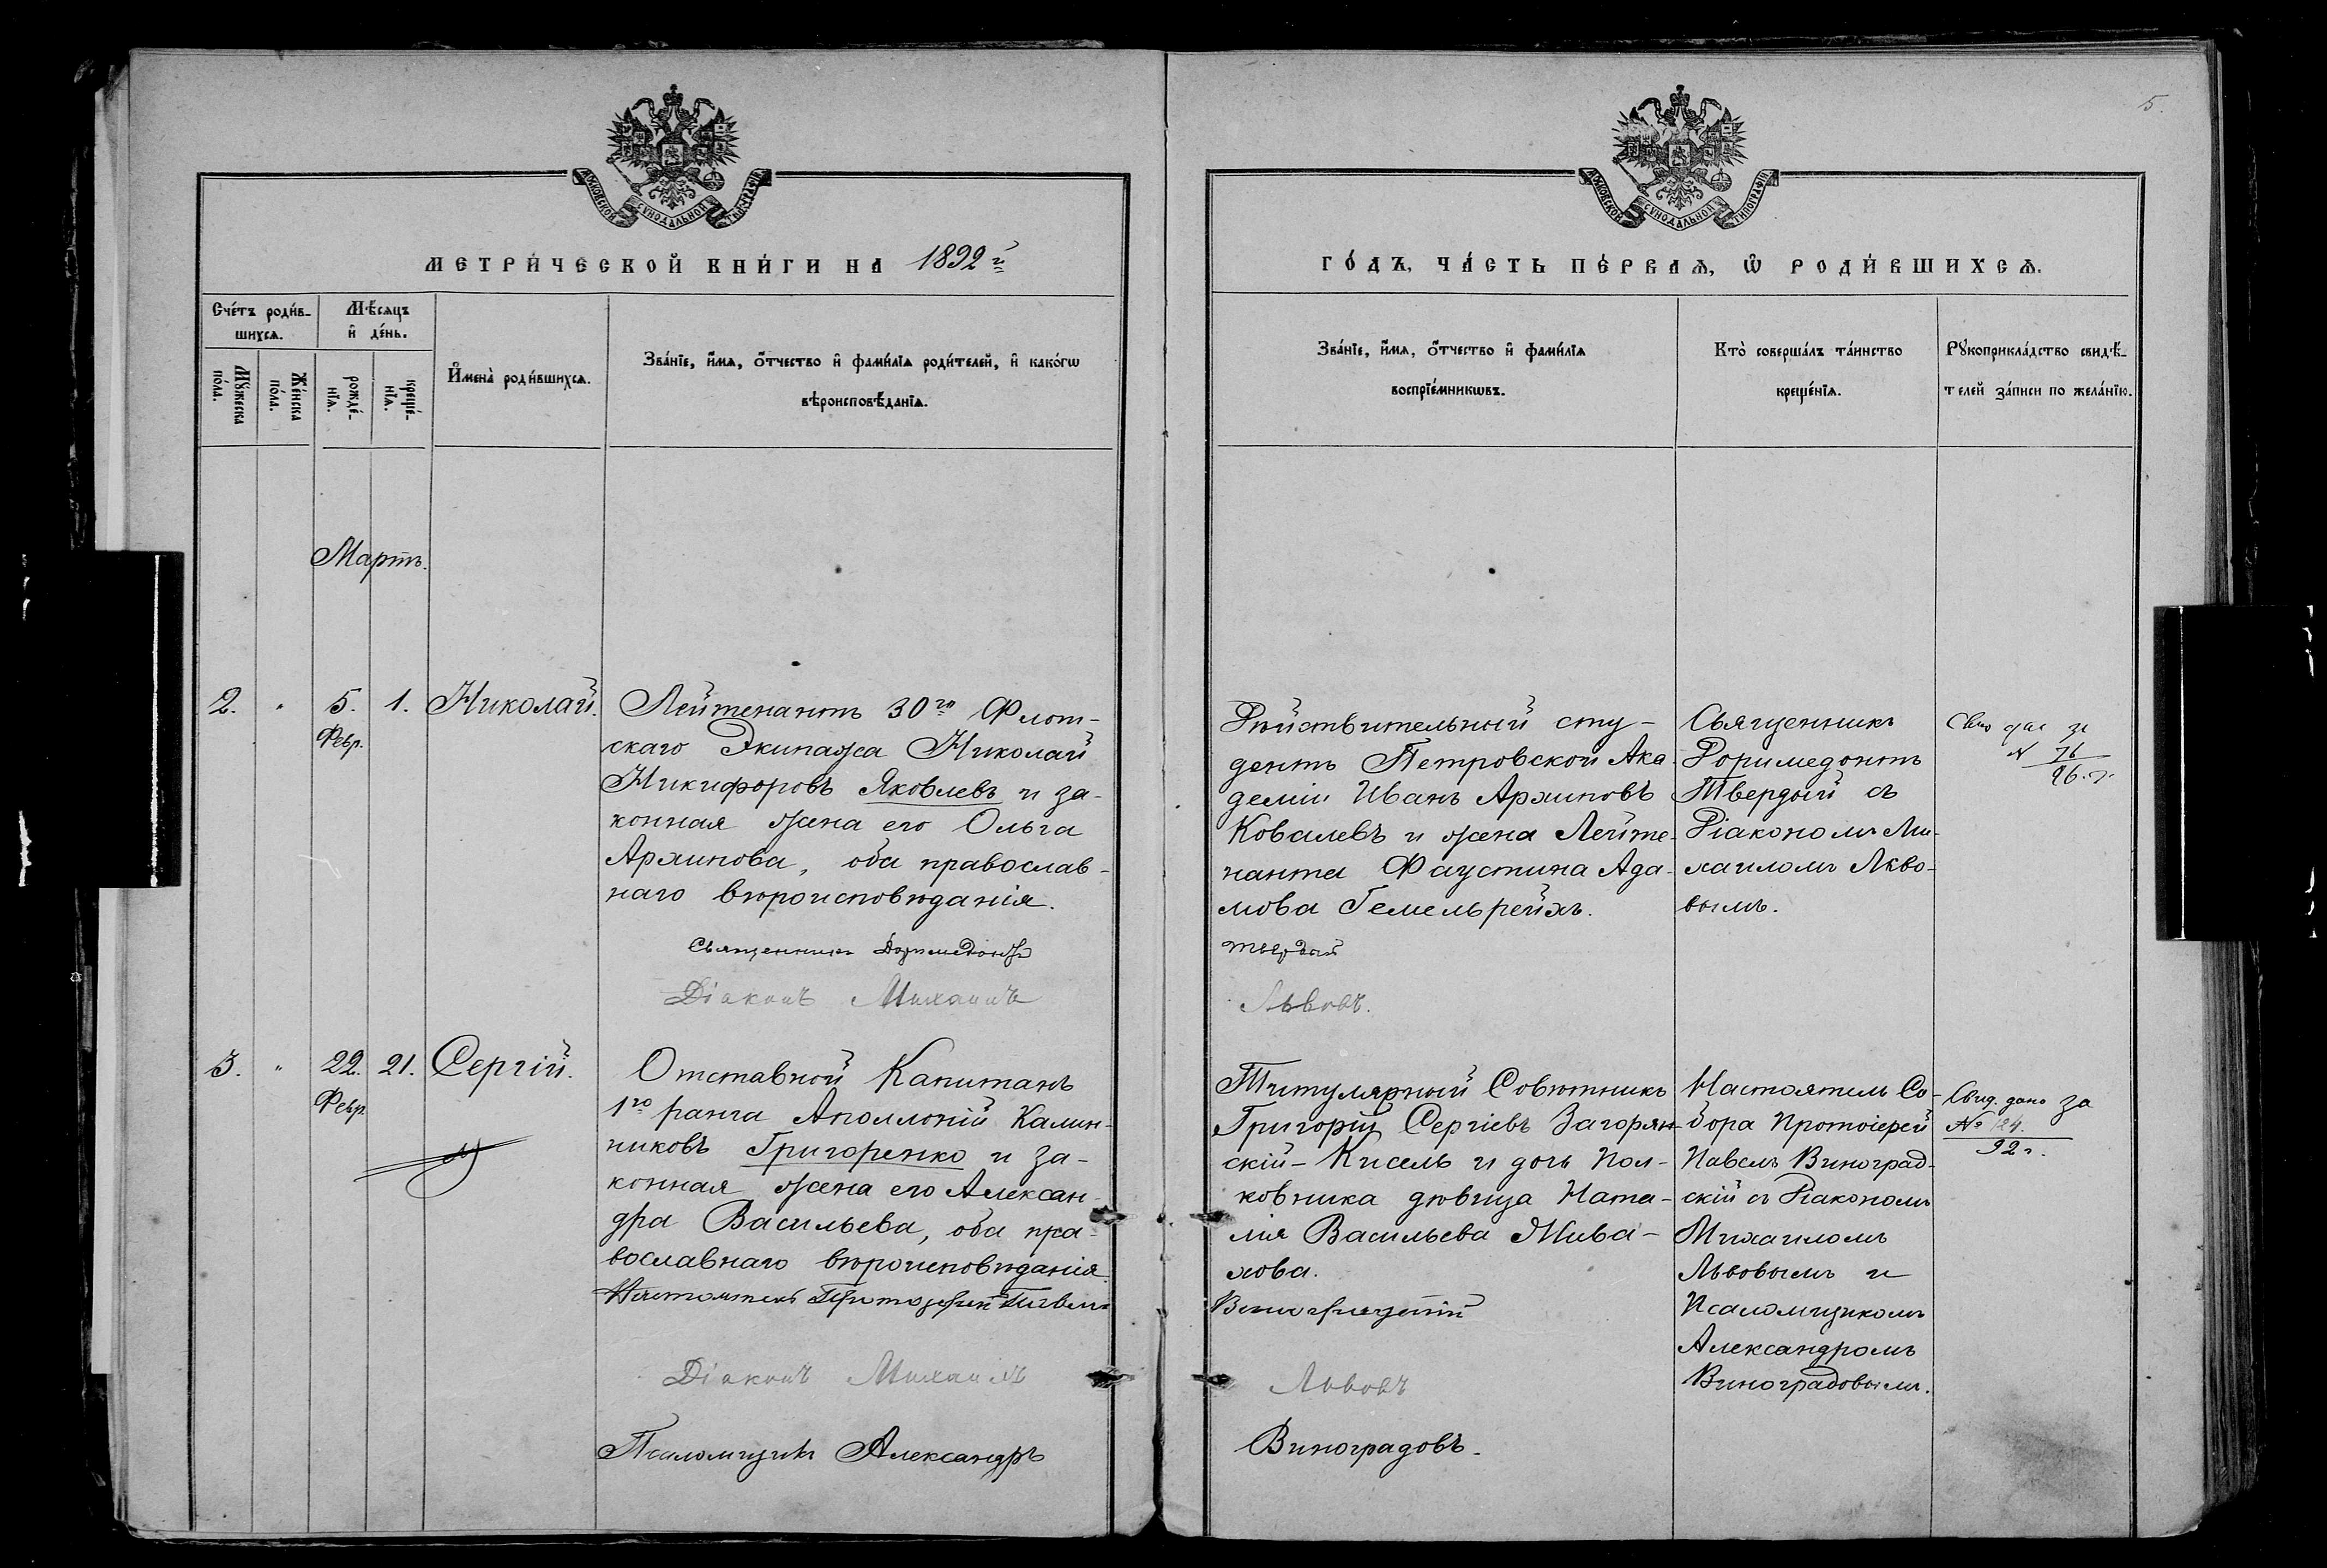 5.
МОСКОВСКОЙ СѴНОДАЛЬНОЙ ТИПОГРАФІИ
МОСКОВСКОЙ СѴНОДАЛЬНОЙ ТИПОГРАФІИ
МЕТРИ́ЧЕСКОЙ КНИ́ГИ НА 1892 й
ГО́ДЪ, ЧА́СТЬ ПЕ́РВАѦ, Ѡ РОДИ́ВШИХСѦ.
Сче́тъ роди́в-
шихсѧ.
Мꙋ́жеска
по́ла.
Же́нска
по́ла.
Мѣ́сѧцъ
и҆ де́нь.
рожде́-
нїѧ.
креще́-
нїѧ.
И҆мена̀ роди́вшихсѧ.
Зва́нїе, и҆́мѧ, ѻ҆́тчество и҆ фами́лїѧ роди́телей, и҆ како́гѡ
вѣроисповѣ́данїѧ.
Зва́нїе, и҆́мѧ, ѻ҆́тчество и҆ фами́лїѧ
воспрїе́мникѡвъ.
Кто̀ соверша́лъ та́инство
креще́нїѧ.
Рꙋкоприкла́дство свидѣ́-
телей за́писи по жела́нїю.
Мартъ.
2. " 5. 1. Николай.
Февр.
Лейтенантъ 30го Флот-
скаго Экипажа Николай
Никифоровъ Яковлевъ и за-
конная жена его Ольга
Архипова, оба православ-
наго вѣроисповѣданія.
Священникъ Доримедонтъ
Діаконъ Михаилъ
Дѣйствительный сту-
дентъ Петровской Ака-
деміи Иванъ Архиповъ
Ковалевъ и жена Лейте-
нанта Фаустина Ада-
мова Гемельрейхъ.
Твердый
Львовъ.
Священникъ
Доримедонтъ
Твердый съ
Діакономъ Ми-
хаиломъ Льво-
вымъ.
№ 76
96. г.
3. " 22. 21. Сергій.
Февр.
Отставной Капитанъ
1го ранга Аполлоній Калин-
никовъ Григоренко и за-
конная жена его Алексан-
дра Васильева, оба пра-
вославнаго вѣроисповѣданія.
Настоятель Протоіерей Павелъ
Діаконъ Михаилъ
Псаломщикъ Александръ
Титулярный Совѣтникъ
Григорій Сергіевъ Загорян-
скій-Кисель и дочь Пол-
ковника дѣвица Ната-
лія Васильева Жива-
хова.
Виноградскій
Львовъ
Виноградовъ.
Настоятель Со-
бора Протоіерей
Павелъ Виноград-
скій съ Діакономъ
Михаиломъ
Львовымъ и
Псаломщикомъ
Александромъ
Виноградовымъ.
Свид. дано за
№ 124.
92 г.